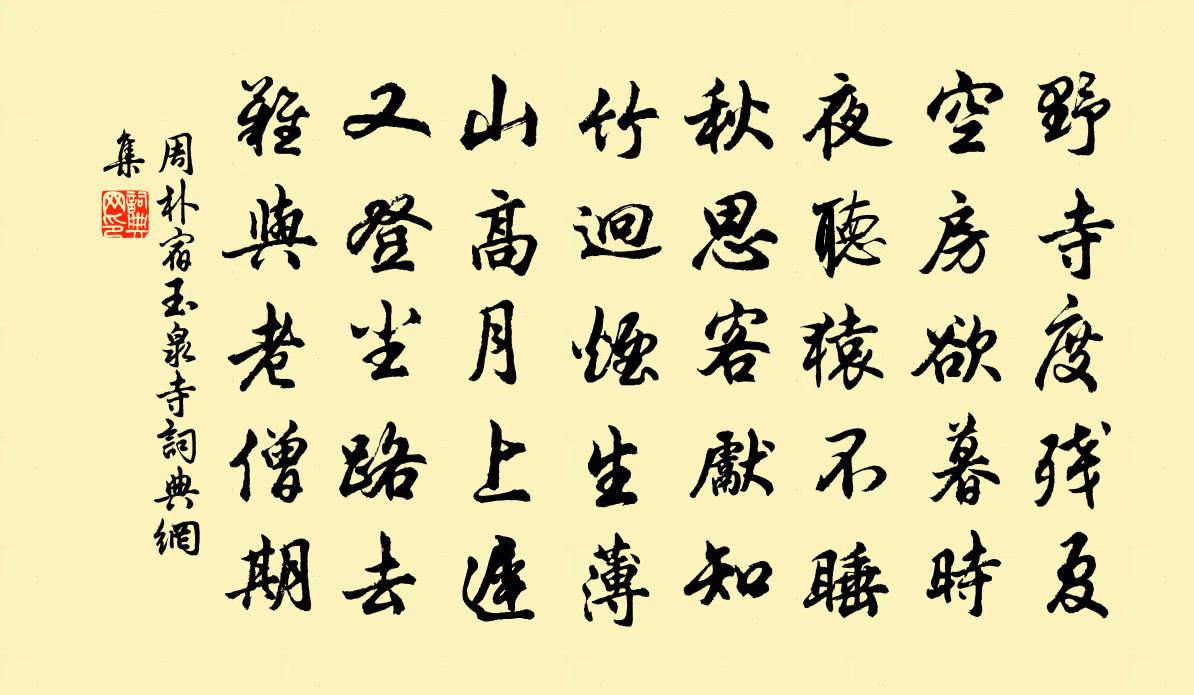 野寺度残夏
空房欲暮時
夜聽猿不睡
秋思客獻知
竹逈煙生薄
山高月上遲
又登尘路去
難與老僧期
周朴宿玉泉寺詞典網
集
詞典网印